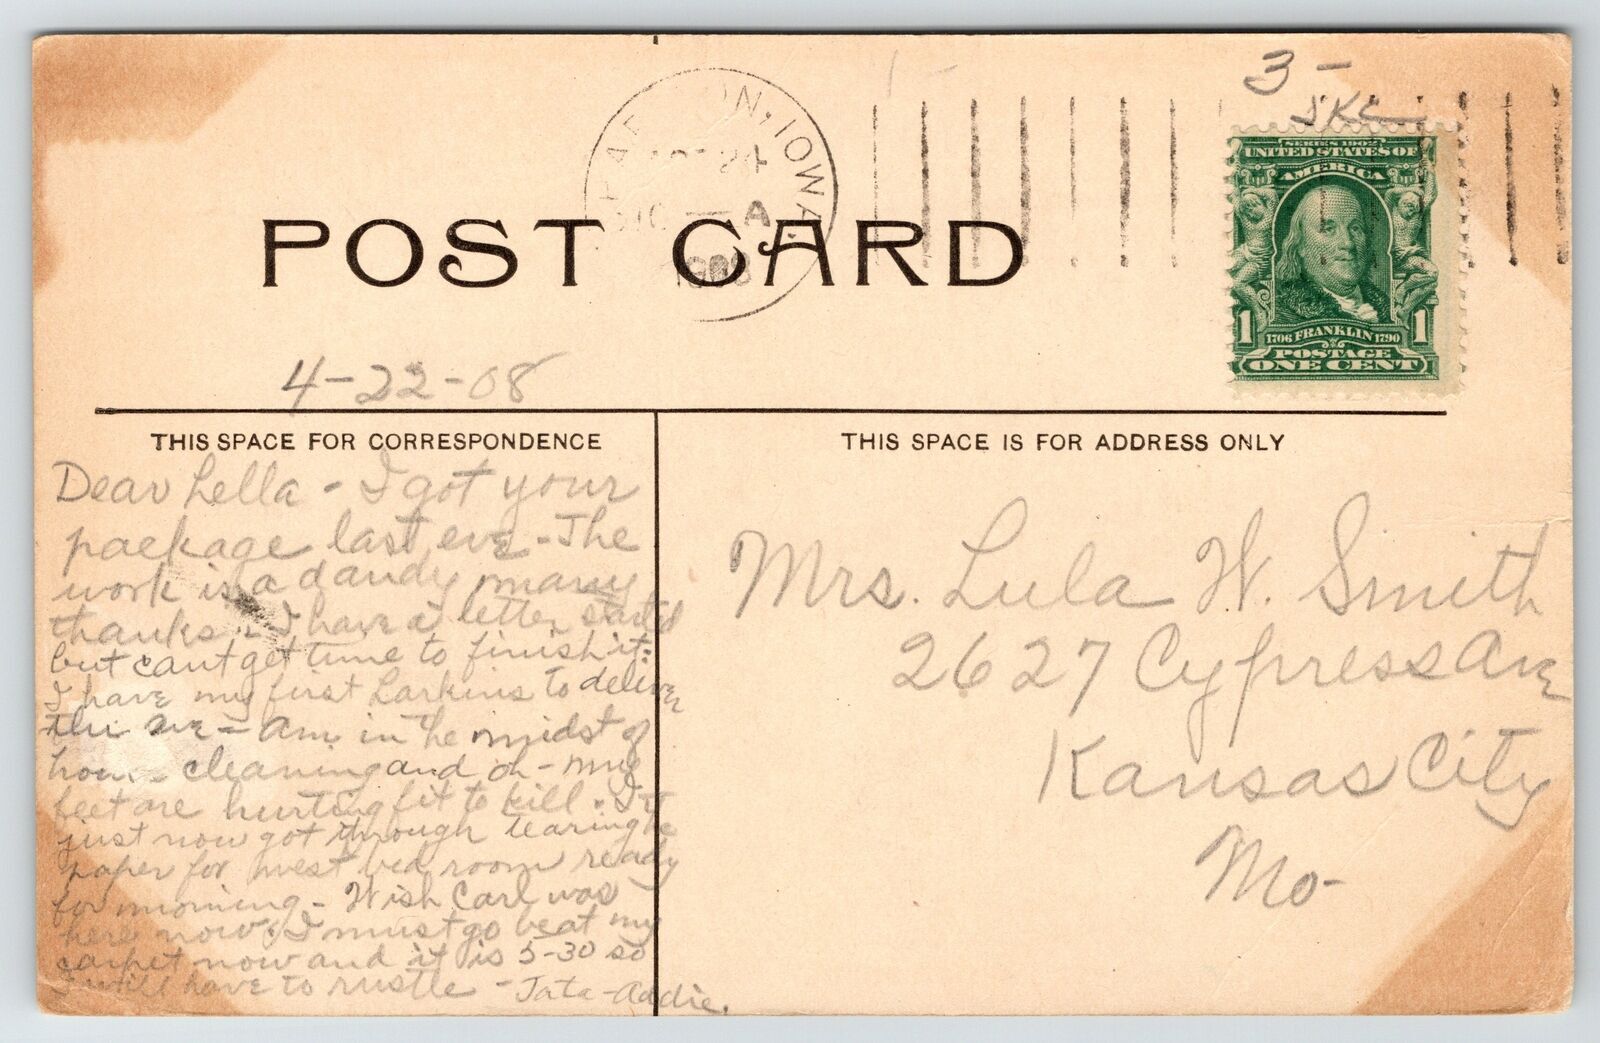 3 -
JKC
IOWA.
24
A
1908
SERIES 1902
UNITED STATES OF
AMERICA
1 1
1706 FRANKLIN 1790
POSTAGE
ONE CENT
POST CARD
4-22-08
THIS SPACE FOR CORRESPONDENCE
Dear Lella - I got your
package last eve - The
work is a dandy many
thanks - I have a letter started
but cant get time to finish it:
I have my first Larkins to deliver
this eve - am in the midst of
cleaning and oh - my
feet are hurting fit to kill. I
just now got through tearing
paper for west bed room ready
for morning - Wish Carl was
here now. I must go beat my
carpet now and it is 5-30 so
I will have to rustle - Tata - Addie.
THIS SPACE IS FOR ADDRESS ONLY
Mrs. Lula W. Smith
2627 Cypress Ave
Kansas City
Mo-